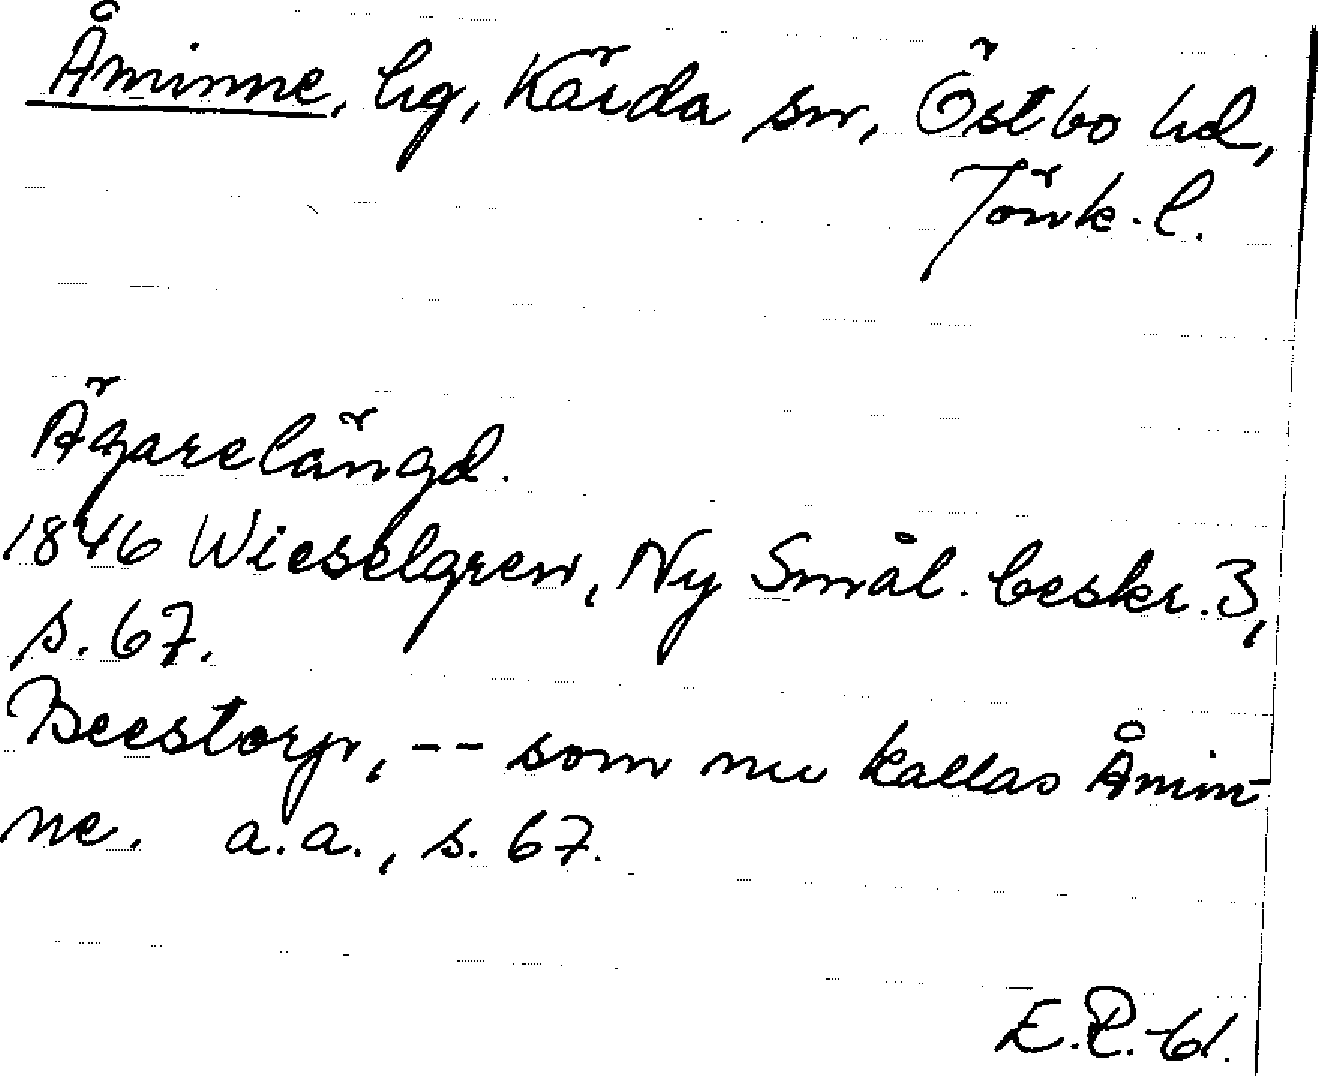 Åminne, hg, Kärda sn, Östbo hd,
Jönk. l.
Ägarelängd.
1846 Wieselgren, Ny Smål. beskr. 3,
s. 67.
Beestorp, -- som nu kallas Åmin-
ne. a.a., s. 67.
E.P.-61.